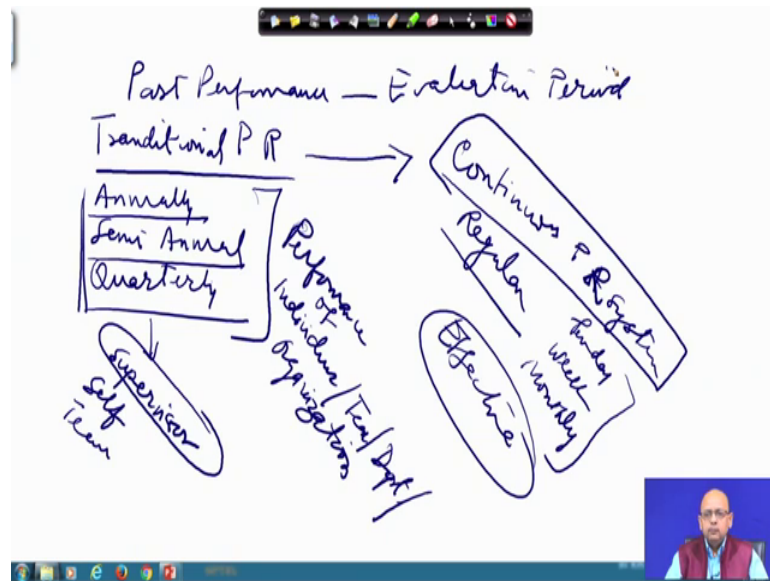 Past Performance — Evaluation Period
Tranditional P R
Annually
Semi Annual
Quarterly
Supervisor
Self
Team
Performance
of
Individuals/Team/Dept/
Organizations
Continuous P R System
Regular
Effective
Weekly
Monthly